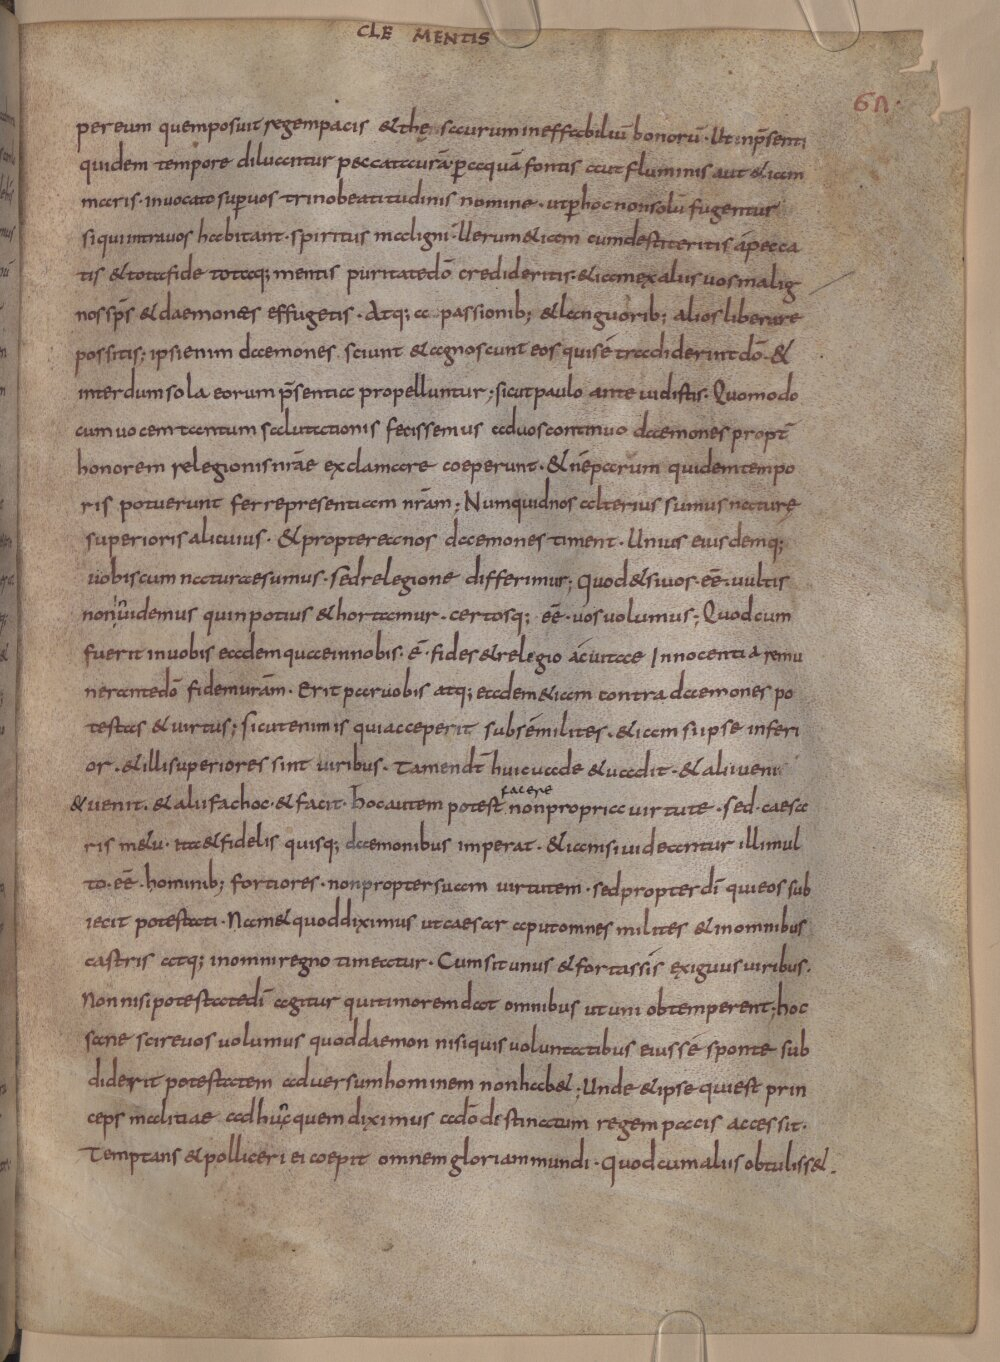 CLE MENTIS
61.
per eum quem posuit regem pacis & thesaurum ineffabiliū bonorū. Ut inp̄senti
quidem tempore diluantur peccata urā. p̄ aquā fontis aut fluminis aut &iam
maris. invocato sup̄ vos trino beatitudinis nomine. ut p̄ hoc non solū fugentur
si qui intra vos habitant. spiritus maligni. Uerum &iam cum destiteritis á pecca
tis & tota fide totaq; mentis puritate dō credideritis. &iam ex aliis vos malig
nos sp̄s & daemones effugetis. Atq; a passionib; & languorib; alios liberare
possitis; ipsi enim daemones sciunt & agnoscunt eos qui sé tradiderint dō. &
interdum sola eorum p̄sentia propelluntur; sicut paulo ante vidistis. Quomodo
cum vocem tantum salutationis fecissemus ad vos continuo daemones propt̄
honorem relegionis nr̄ae exclamare coeperunt. & né parum quidem tempo
ris potuerunt ferre presentiam nr̄am; Numquid nos alterius sumus naturę
superioris alicuius. & propterea nos daemones timent. Unius eiusdemq;
vobiscum naturae sumus. sed relegione differimur; Quod & si vos. eē. vultis
non invidemus quin potius & hortamur. certosq; eē. vos volumus; Quod cum
fuerit in vobis eadem quae in nobis. ē. fides & relegio ac vitae Innocentia remu
nerante dō fidem urām. Erit par vobis atq; eadem &iam contra daemones po
testas & virtus; sicut enim is qui acceperit sub sé milites. &iam si ipse inferi
or. & illi superiores sint viribus. Tamen dt̄ huic vade & vadit. & alii veni
& venit. & alii fac hoc. & facit. hoc autem potest facere non propria virtute. sed. caesa
ris metu. ita & fidelis quisq; daemonibus imperat. &iamsi videantur illi mul
to. eē. hominib; fortiores. non propter suam virtutem. sed propter dī qui eos sub
iecit potestati. Nam & quod diximus ut caesar aput omnes milites & in omnibus
castris atq; in omni regno timeatur. Cum sit unus & fortassis exiguus viribus.
Non nisi potestate dī agitur qui timorem dat omnibus ut uni obtemperent; hoc
sane scire vos volumus quod daemon nisi quis voluntatibus eius sé sponte sub
diderit potestatem adversum hominem non hab&; Unde & ipse qui est prin
ceps malitiae ad hunc quem diximus a dō destinatum regem pacis accessit.
Temptans & polliceri ei coepit omnem gloriam mundi. Quod cum aliis obtuliss&.